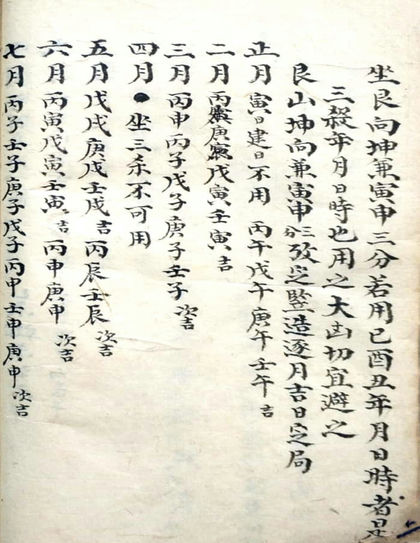 坐艮向坤兼寅申三分若用巳酉丑年月日時者是
三殺年月日時也用之大凶切宜避之
艮山坤向兼寅申三分攷定豎造逐月吉日定局
正月寅日建日不用 丙午戊午庚午壬午吉
二月丙寅庚寅戊寅壬寅吉
三月丙申丙子戊子庚子壬子次吉
四月●坐三杀不可用
五月戊戌庚戌壬戌吉丙辰壬辰次吉
六月丙寅戊寅壬寅吉丙申庚申次吉
七月丙子壬子庚子戊子丙申壬申庚申次吉